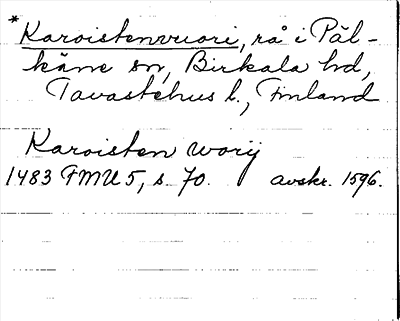 *Karoistenvuori, rå i Päl-
käne sn, Birkala hd,
Tavastehus l., Finland
Karoisten worij
1483 FMU 5, s. 70. avskr. 1596.